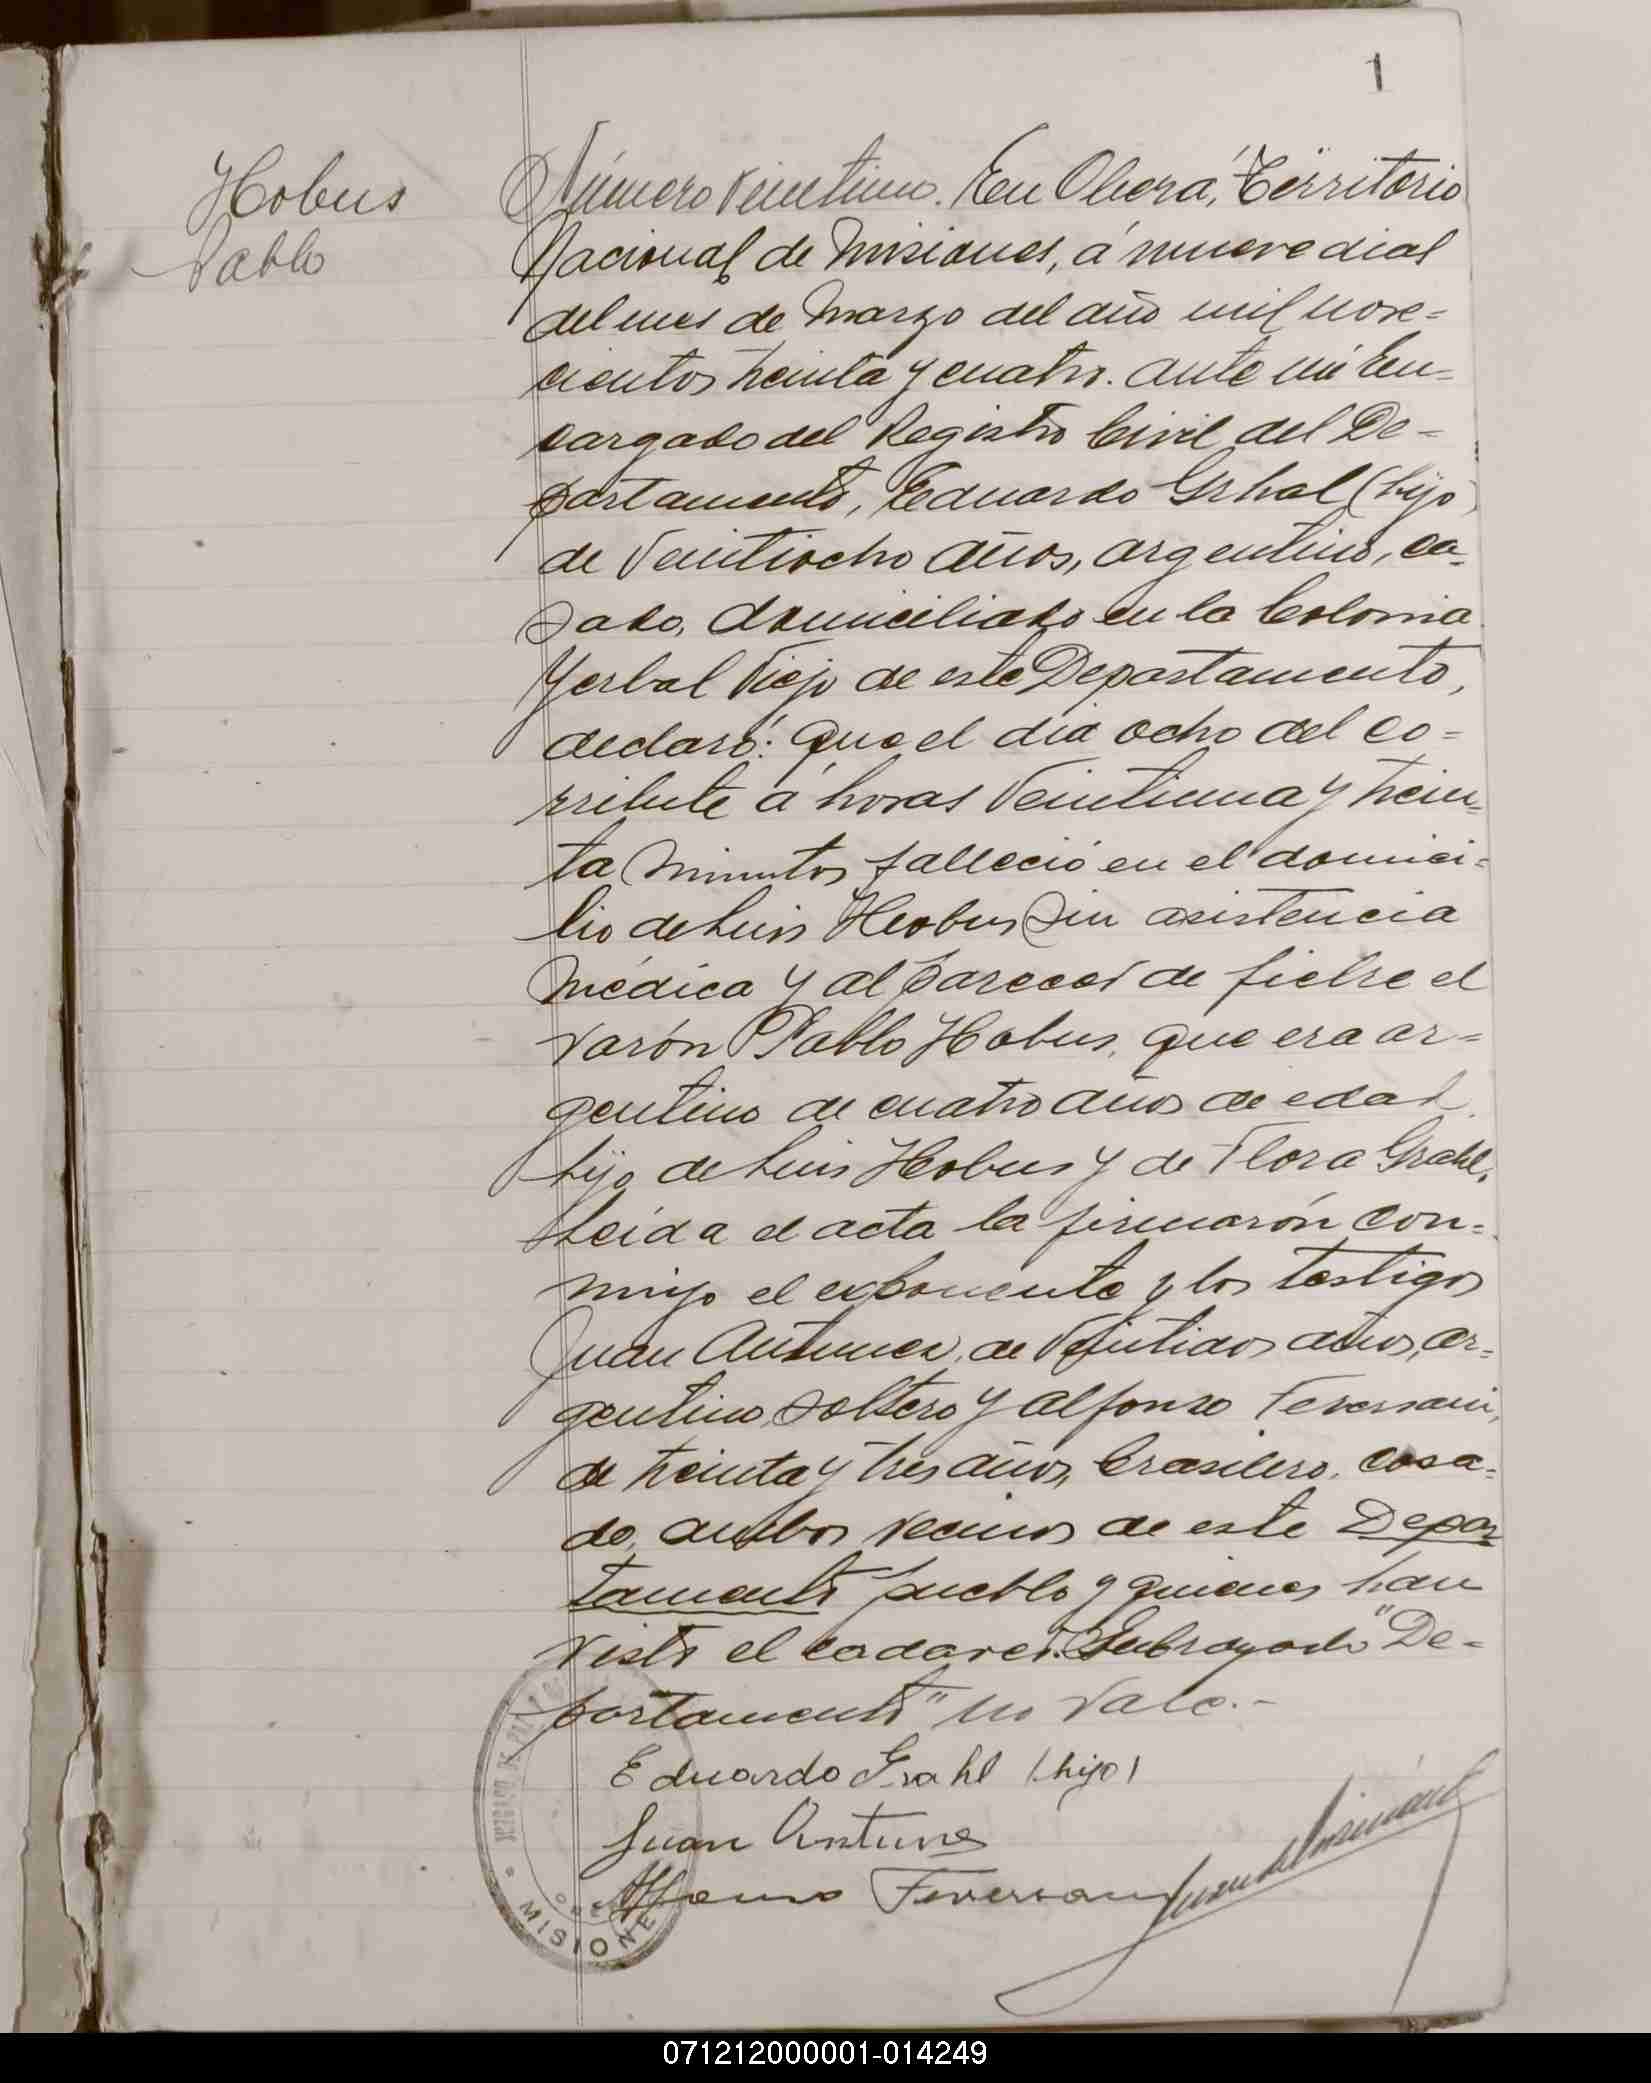 1
Hobus
Pablo
Número veintiuno. En Oberá, Territorio
Nacional de Misiones, á nueve dias
del mes de Marzo del año mil nove=
cientos treinta y cuatro. ante mí En=
cargado del Registro Civil del De=
partamento, Eduardo Grhal (hijo)
de veintiocho años, argentino, ca=
sado, domiciliado en la Colonia
Yerbal Viejo de este Departamento,
declaró: Que el dia ocho del co=
rriente á horas veintiuna y trein=
ta minutos falleció en el domici=
lio de Luis Hobus sin asistencia
médica y al parecer de fiebre el
varón Pablo Hobus, que era ar=
gentino de cuatro años de edad
hijo de Luis Hobus y de Flora Grahl.
Leida el acta la firmarón con=
migo el exponente y los testigos
Juan Antunez, de veintidos años, ar=
gentino, soltero y Alfonso Feversani,
de treinta y tres años, brasilero, casa=
do, ambos vecinos de este Depar
tamento pueblo y quienes han
visto el cadaver. Subrayado "De=
partamento" no vale.-
Eduardo Grahl (hijo)
Juan Antunes
Alfonso Feversani
JUZGADO DE PAZ
MISIONES
071212000001-014249